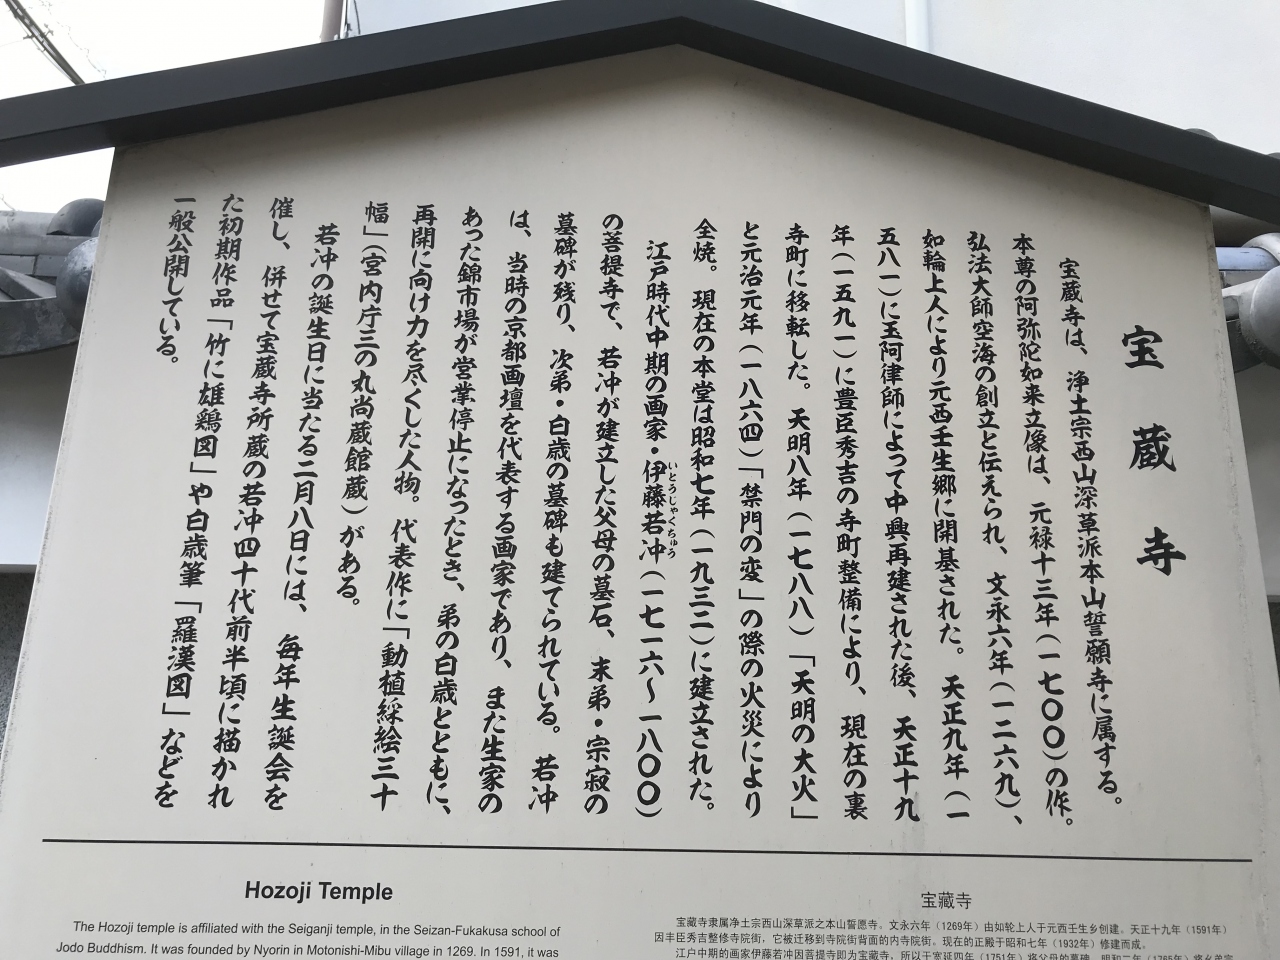 宝蔵寺
宝蔵寺は、浄土宗西山深草派本山誓願寺に属する。
本尊の阿弥陀如来立像は、元禄十三年(一七〇〇)の作。
弘法大師空海の創立と伝えられ、文永六年(一二六九)、
如輪上人により元西壬生郷に開基された。天正九年(一
五八一)に玉阿律師によって中興再建された後、天正十九
年(一五九一)に豊臣秀吉の寺町整備により、現在の裏
寺町に移転した。天明八年(一七八八)「天明の大火」
と元治元年(一八六四)「禁門の変」の際の火災により
全焼。現在の本堂は昭和七年(一九三二)に建立された。
江戸時代中期の画家・伊藤若冲(一七一六〜一八〇〇)
いとうじゃくちゅう
の菩提寺で、若冲が建立した父母の墓石、末弟・宗寂の
墓碑が残り、次弟・白歳の墓碑も建てられている。若冲
は、当時の京都画壇を代表する画家であり、また生家の
あった錦市場が営業停止になったとき、弟の白歳とともに、
再開に向け力を尽くした人物。代表作に「動植綵絵三十
幅」(宮内庁三の丸尚蔵館蔵)がある。
若冲の誕生日に当たる二月八日には、毎年生誕会を
催し、併せて宝蔵寺所蔵の若冲四十代前半頃に描かれ
た初期作品「竹に雄鶏図」や白歳筆「羅漢図」などを
一般公開している。
Hozoji Temple
The Hozoji temple is affiliated with the Seiganji temple, in the Seizan-Fukakusa school of
Jodo Buddhism. It was founded by Nyorin in Motonishi-Mibu village in 1269. In 1591, it was
宝藏寺
宝藏寺隶属净土宗西山深草派之本山誓愿寺。文永六年(1269年)由如轮上人于元西壬生乡创建。天正十九年(1591年)
因丰臣秀吉整修寺院街，它被迁移到寺院街背面的内寺院街。现在的正殿于昭和七年(1932年)修建而成。
江户中期的画家伊藤若冲因菩提寺即为宝藏寺，所以于宽延四年(1751年)将父母的墓碑、明和二年(1765年)将幺弟宗